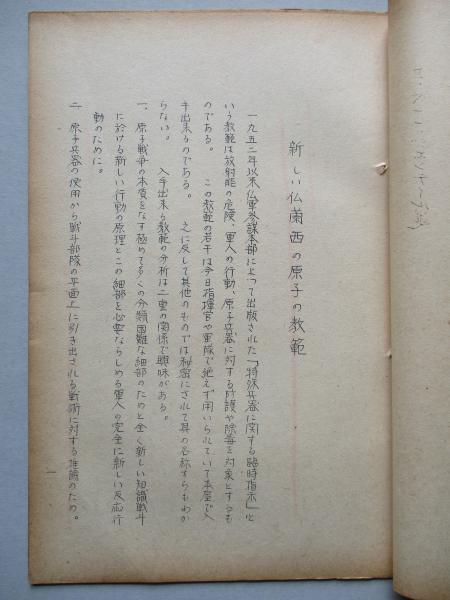 新しい仏蘭西の原子の教範
一九五二年以来仏軍参謀本部によって出版された「特殊兵器に関する臨時指示」と
いう教範は放射能の危険、軍人の行動、原子兵器に対する防護や除毒を対象とするも
のである。この教範の若干は今日指揮官や軍隊で絶えず用いられていて本屋で入
手出来るのである。之に反して其他のものでは秘密にされて其の名称すらもわか
らない。入手出来る教範の分析は二重の関係で興味がある。
一、原子戦争の本質をなす極めて多くの分類困難な細部のためと全く新しい知識戦斗
に於ける新しい行動の原理とこの細部を必要ならしめる軍人の完全に新しい反応行
動のために。
二、原子兵器の使用から戦斗部隊の平面上に引き出される戦術に対する推論のため。
一